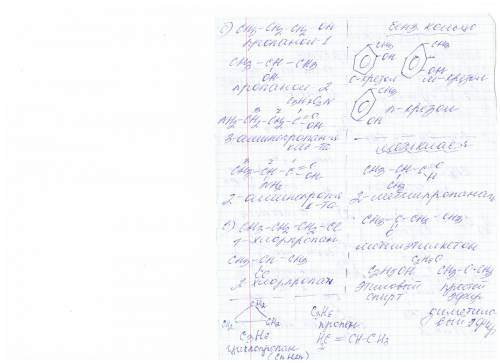 б) CH3-CH2-CH2 OH
пропанол-1
CH3-CH-CH3
OH
пропанол 2
NH2-CH2-CH2-C=O
OH
3-аминопропан
к-та
CH3-CH-C=O
OH
NH2
2-аминопроп
к-та
в) CH3-CH2-CH2-Cl
1-хлорпропан
CH3-CH-CH3
Cl
2 хлорпропан
CH2
CH2 CH2
C3H6
циклопропан
(CnH2n)
C3H6
пропен
HC=CH-CH3
Бенз. кольцо
CH3
OH
о-крезол
CH3
OH
м-крезол
CH3
OH
п-крезол
CH3-CH-C=O
H
CH3
2-метилпропаналь
CH3-C-CH2-CH3
метилэтилкетон
C2H6O
C2H5OH
этиловый
спирт
CH3-O-CH3
простой
эфир
диметило
вый эфир